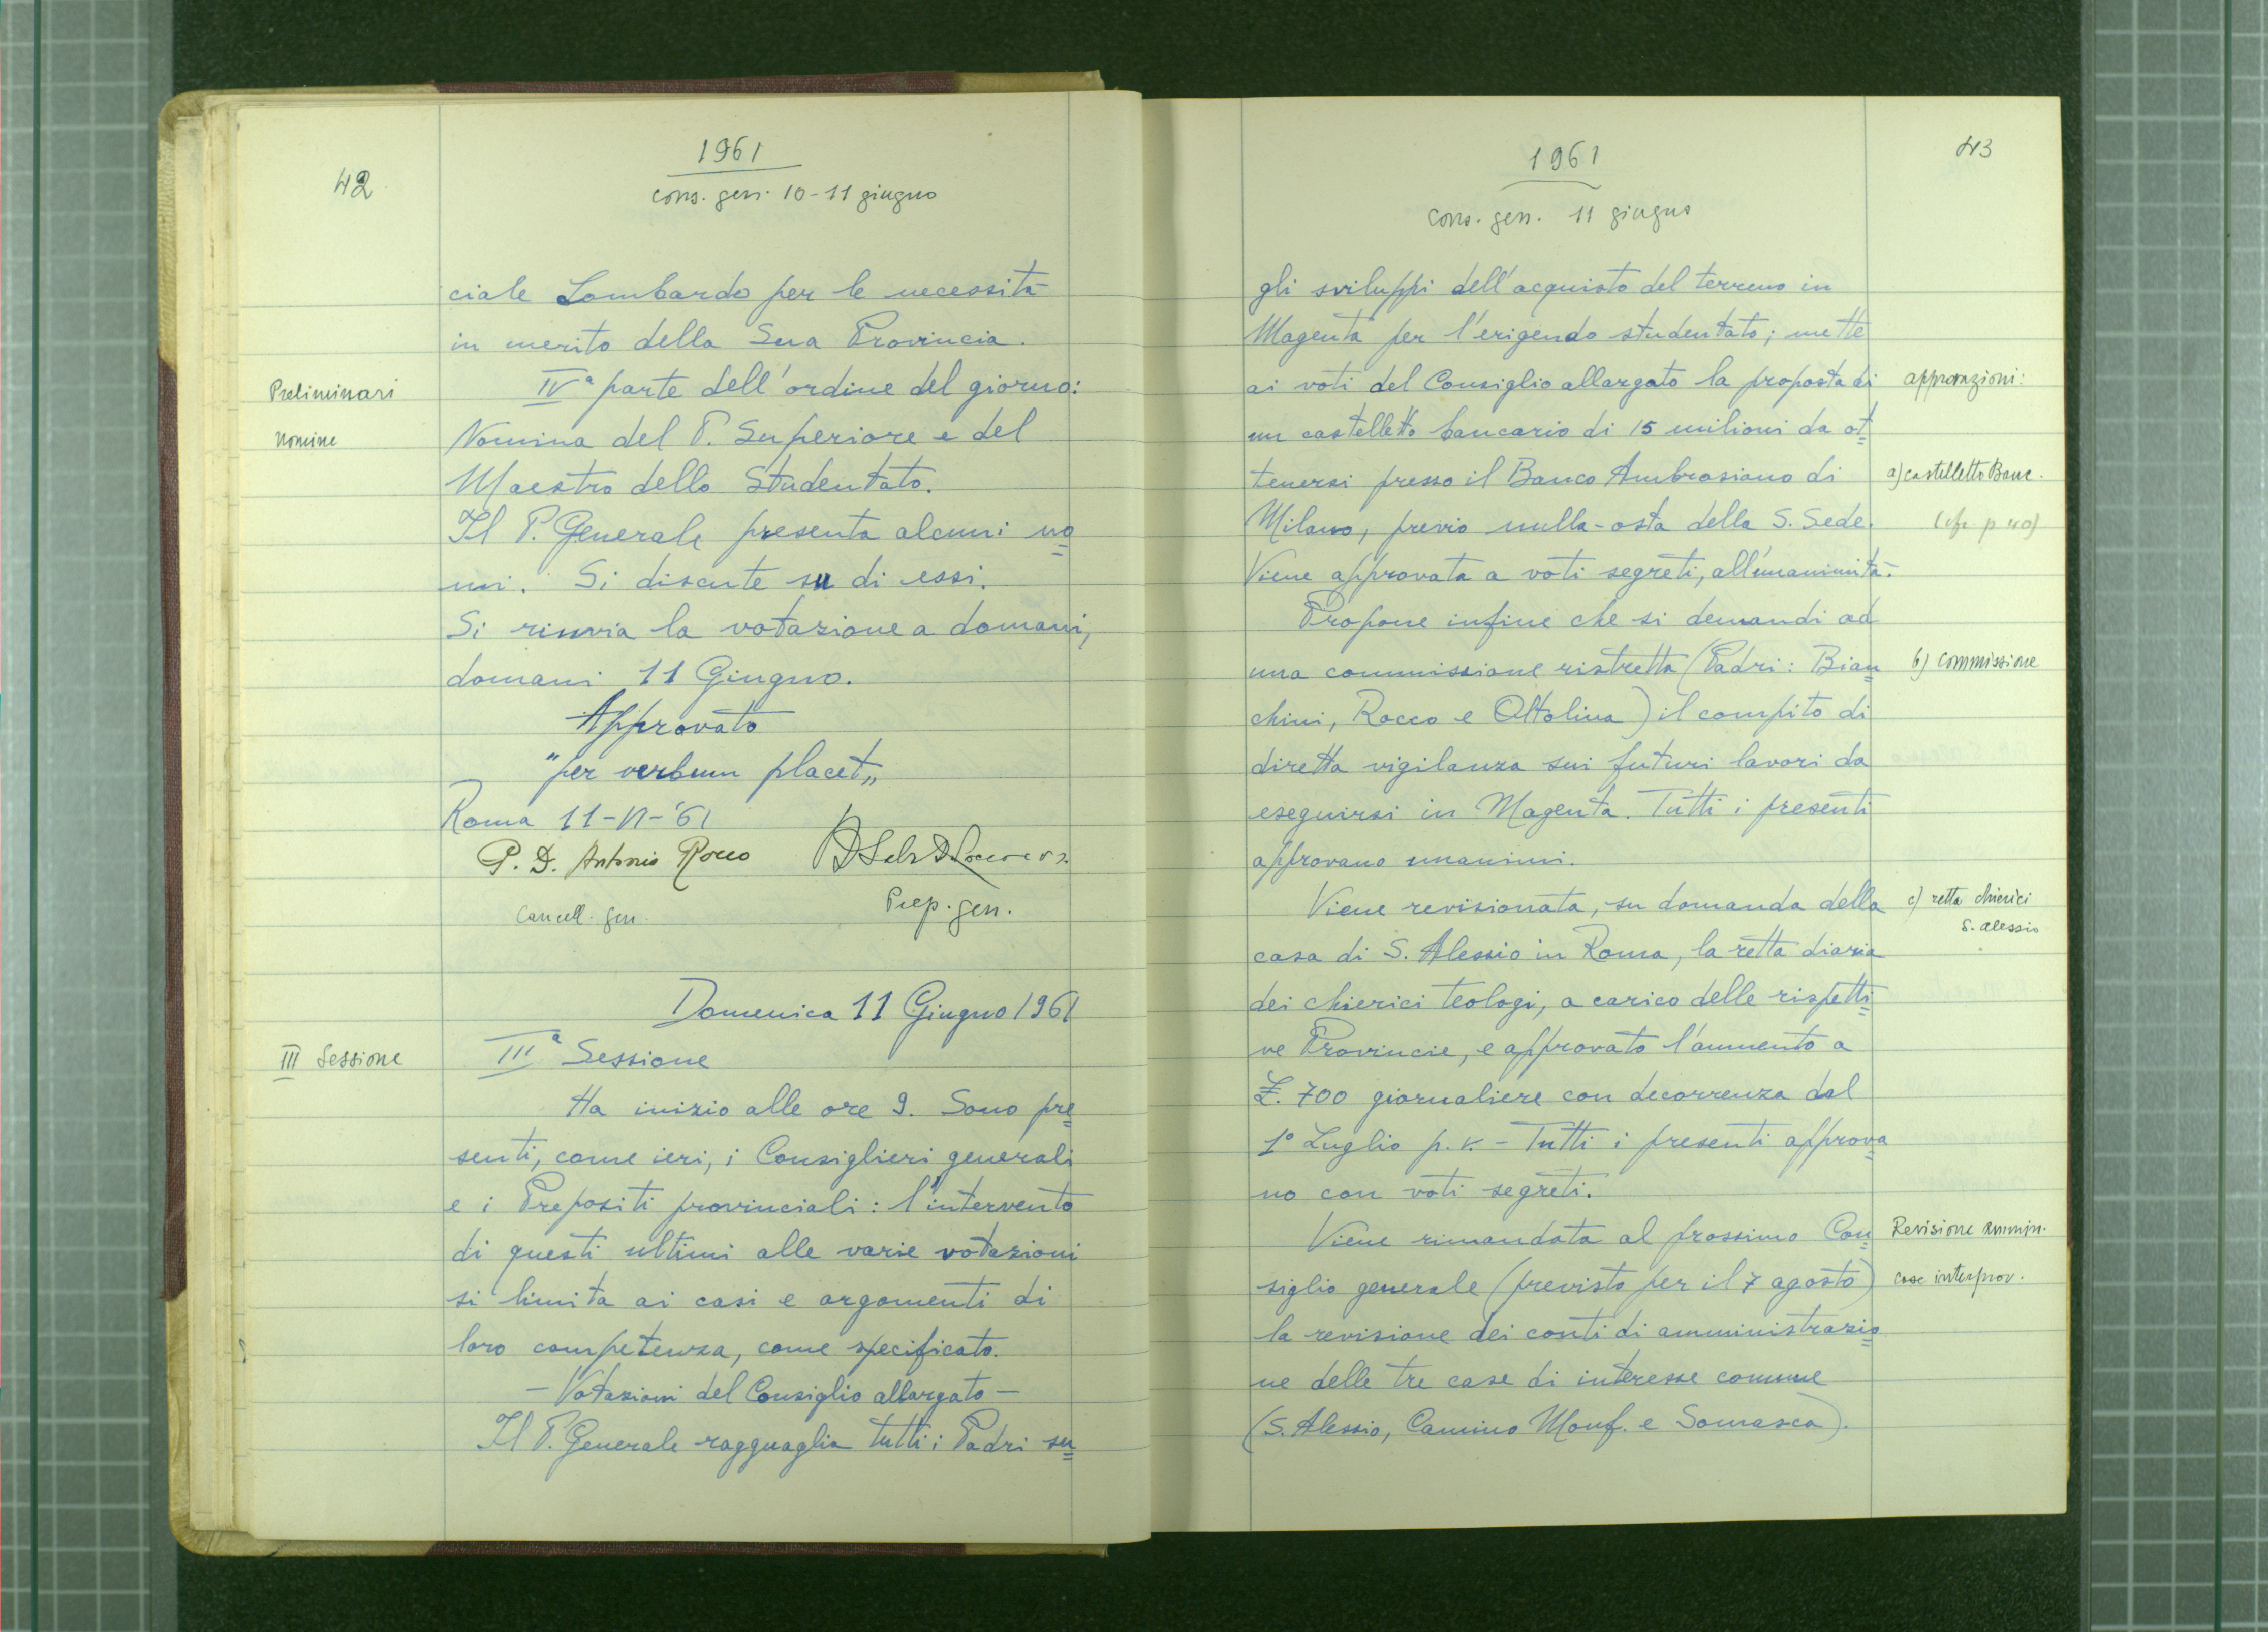 42
1961
cons. gen. 10-11 giugno
ciale Lombardo per le necessità
in merito della Sua Provincia.
Preliminari
IVª parte dell'ordine del giorno:
nomine
Nomina del P. Superiore e del
Maestro dello Studentato.
Il P. Generale presenta alcuni no=
mi. Si discute su di essi.
Si rinvia la votazione a domani,
domani 11 Giugno.
Approvato
"per verbum placet„
Roma 11-VI-'61
P. D. Antonio Rocco
Cancell. gen.
Prep. gen.
Domenica 11 Giugno 1961
III Sessione
IIIª Sessione
Ha inizio alle ore 9. Sono pre=
senti, come ieri, i Consiglieri generali
e i Prepositi provinciali: l'intervento
di questi ultimi alle varie votazioni
si limita ai casi e argomenti di
loro competenza, come specificato.
- Votazioni del Consiglio allargato -
Il P. Generale ragguaglia tutti i Padri su=
43
1961
cons. gen. 11 giugno
gli sviluppi dell'acquisto del terreno in
Magenta per l'erigendo studentato; mette
ai voti del Consiglio allargato la proposta di
approvazioni:
un castelletto bancario di 15 milioni da ot=
tenersi presso il Banco Ambrosiano di
a) castelletto Banc.
Milano, previo nulla-osta della S. Sede.
(cfr. p 40)
Viene approvata a voti segreti, all'unanimità.
Propone infine che si demandi ad
una commissione ristretta (Padri: Bian=
b) commissione
chini, Rocco e Oltolina) il compito di
diretta vigilanza sui futuri lavori da
eseguirsi in Magenta. Tutti i presenti
approvano unanimi.
Viene revisionata, su domanda della
c) retta chierici
S. Alessio
casa di S. Alessio in Roma, la retta diaria
dei chierici teologi, a carico delle rispetti=
ve Provincie, e approvato l'aumento a
£. 700 giornaliere con decorrenza dal
1° Luglio p.v. - Tutti i presenti approva=
no con voti segreti.
Viene rimandata al prossimo Con=
Revisione ammin.
siglio generale (previsto per il 7 agosto)
case interprov.
la revisione dei conti di amministrazio=
ne delle tre case di interesse comune
(S. Alessio, Camino Monf. e Somasca).